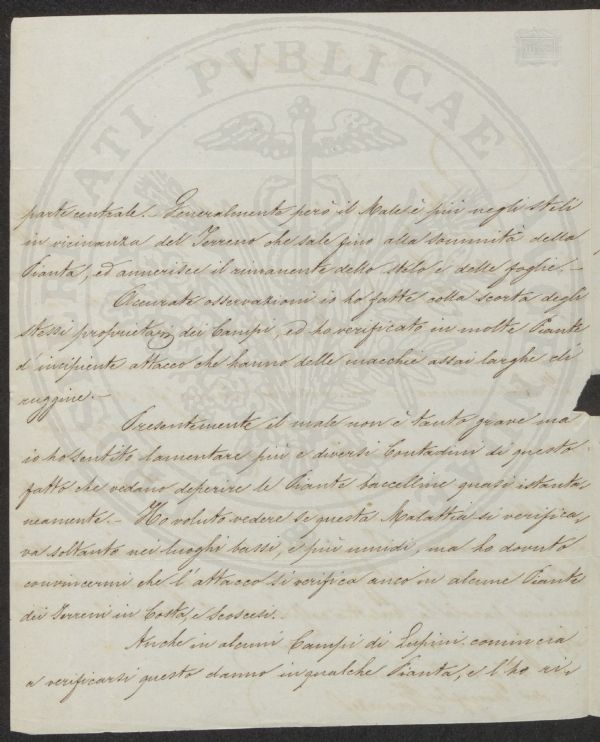 SECURITATI PVBLICAE
parte centrale. – Generalmente però il Male è più negli steli
in vicinanza del Terreno che sale fino alla sommità della
Pianta, ed annerisce il rimanente dello stelo e delle foglie. –
Accurate osservazioni io ho fatte colla scorta degli
stessi proprietarj dei Campi, ed ho verificato in molte Piante
d'incipiente attacco che hanno delle macchie assai larghe di
ruggine. –
Presentemente il male non è tanto grave ma
io ho sentito lamentare più e diversi Contadini di questo
fatto che vedano deperire le Piante baccelline quasi istanta,
neamente. – Ho voluto vedere se questa Malattia si verifica,
va soltanto nei luoghi bassi, e più umidi, ma ho dovuto
convincermi che l'attacco si verifica anco in alcune Piante
dei Terreni in Costa, e Scoscesi. –
Anche in alcuni Campi di Lupini comincia
a verificarsi questo danno in qualche Pianta, e l'ho ri,